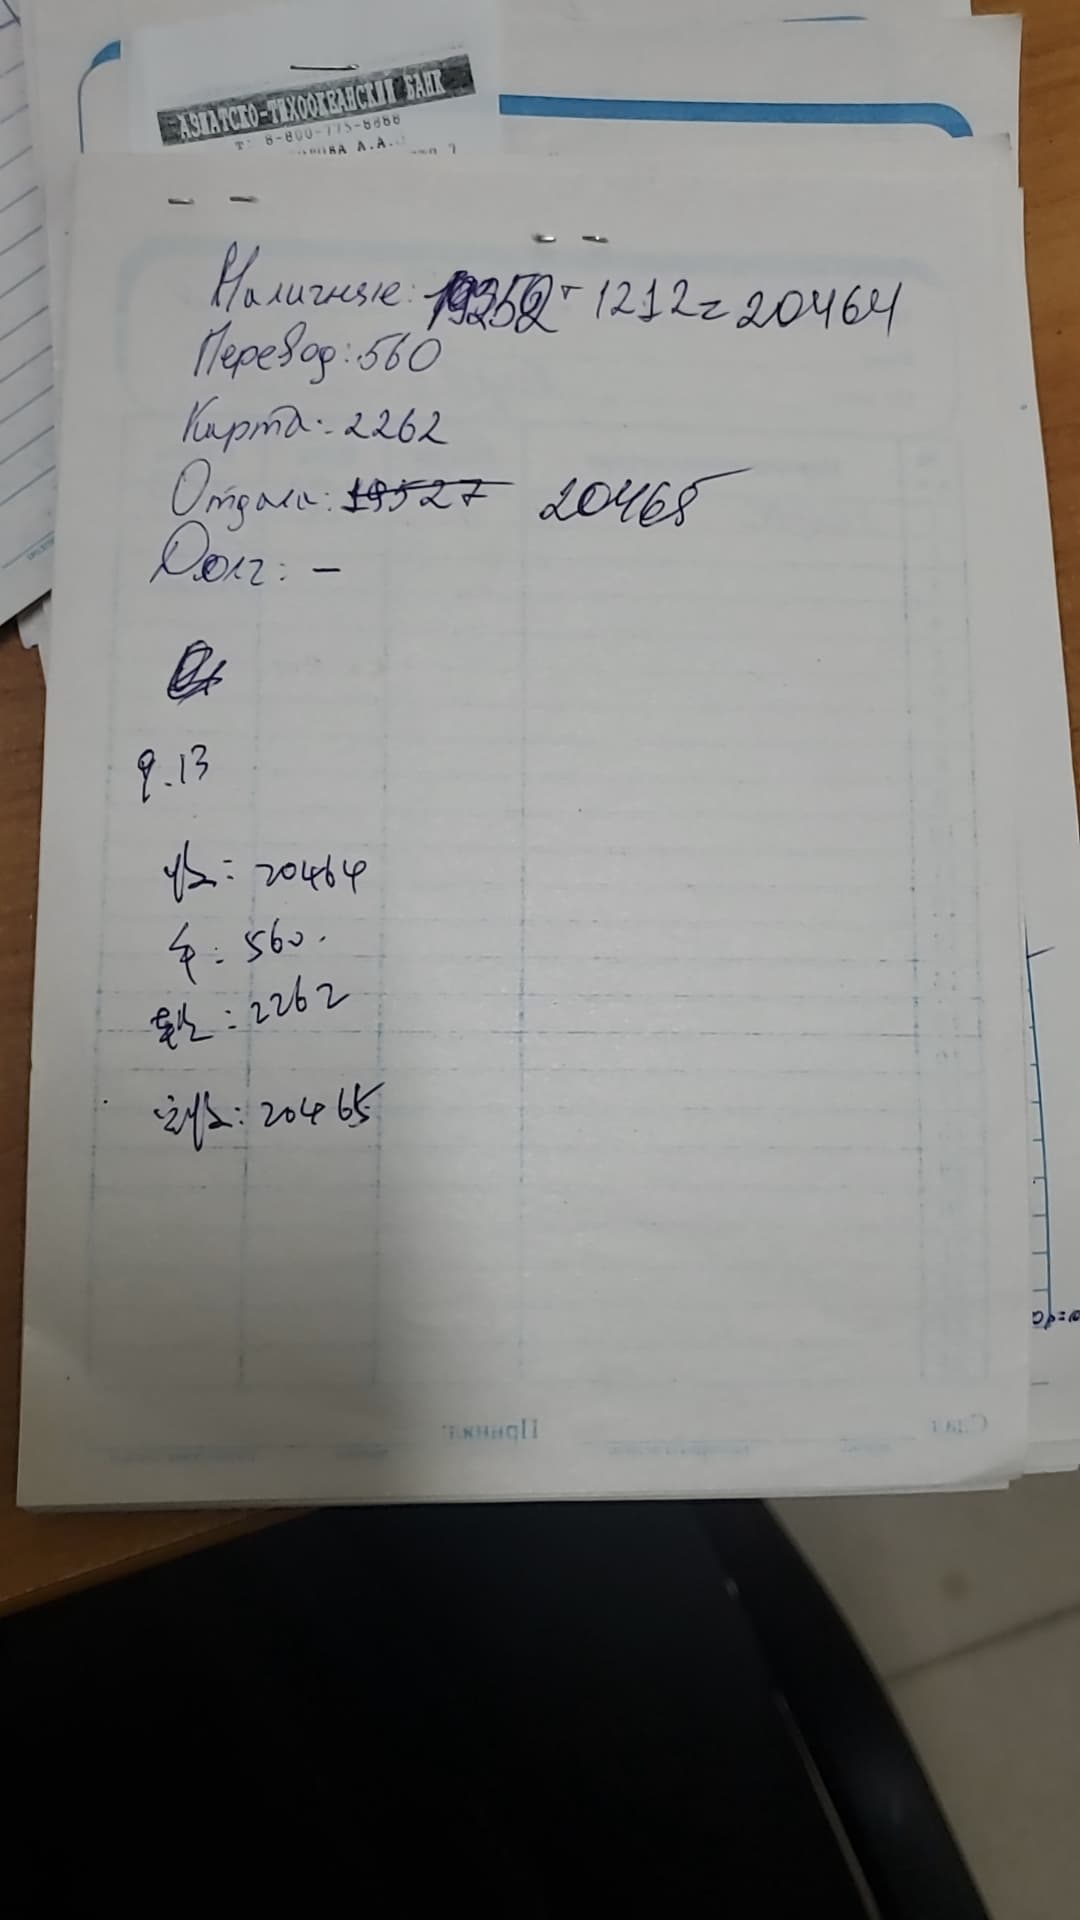 АЗИАТСКО-ТИХООКЕАНСКИЙ БАНК
Т: 8-800-775-8888
А.А.
Наличные: 19252 + 1212 = 20464
Перевод: 560
Карта: 2262
Отдали: 19527 20465
Долг: —
9.13
收: 20464
卡: 560.
: 2262
实收: 20465
Принял:
Сдал